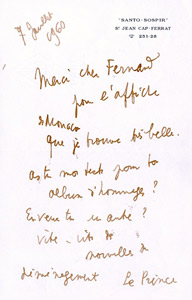 "SANTO-SOSPIR"
ST JEAN CAP-FERRAT
☎ 251-28
7 Juillet
1960
Merci cher Fernand
pour l'affiche
de Monaco
que je trouve très belle.
as tu mon texte pour ton
album d'hommages ?
En veux tu un autre ?
Vite - vite des
nouvelles du
déménagement Le Prince